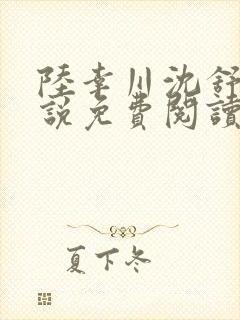 陸幸川沈舒
說免費閱讀
夏下冬